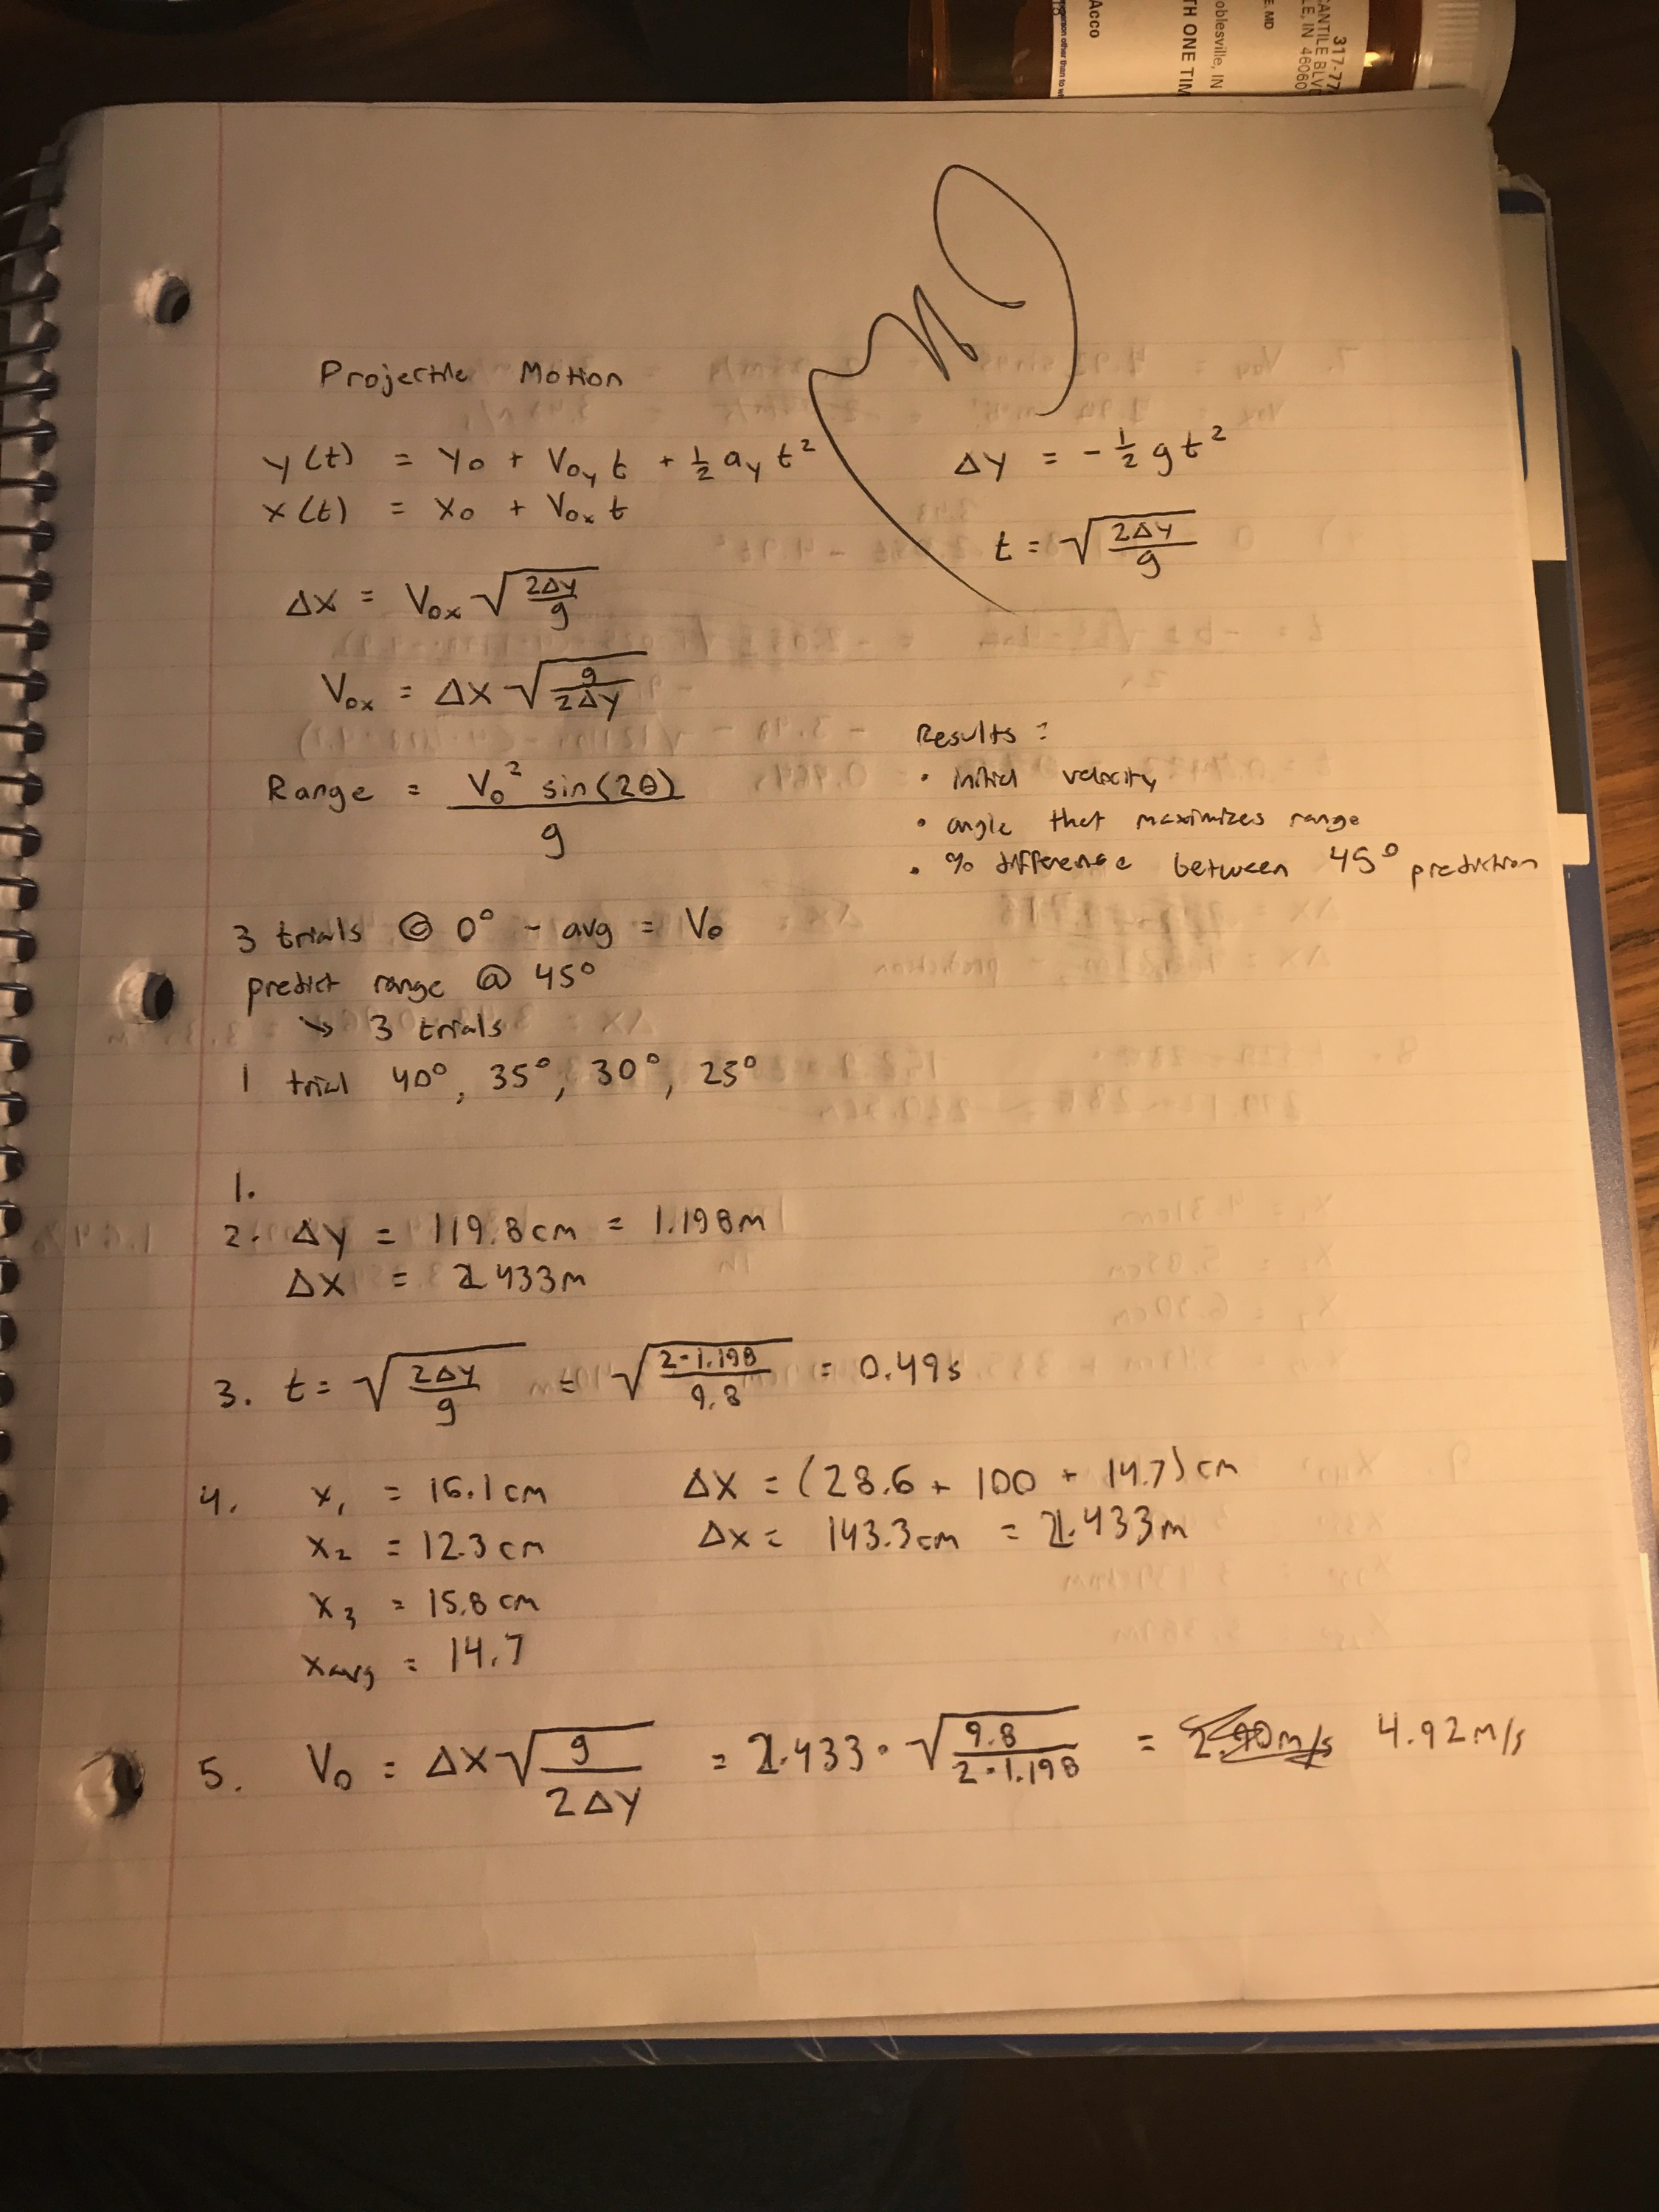 317-77
CANTILE BLV
LE, IN 46060
E, MD
oblesville, IN
TH ONE TIM
Acco
person other than to wh
Projectile Motion
y(t) = y₀ + V₀y t + ½ ay t²
x(t) = x₀ + V₀x t
Δy = -½ g t²
t = √(2Δy/g)
Δx = V₀x √(2Δy/g)
V₀x = Δx √(g/2Δy)
Range = V₀² sin(2θ)/g
Results:
• initial velocity
• angle that maximizes range
• % difference between 45° prediction
3 trials @ 0° - avg = V₀
predict range @ 45°
↘ 3 trials
1 trial 40°, 35°, 30°, 25°
1.
2. Δy = 119.8cm = 1.198m
Δx = 2.433m
3. t = √(2Δy/g) = √(2·1.198/9.8) = 0.49s
4. x₁ = 16.1cm
x₂ = 12.3cm
x₃ = 15.8cm
xavg = 14.7
Δx = (28.6 + 100 + 14.7)cm
Δx = 143.3cm = 2.433m
5. V₀ = Δx √(g/2Δy) = 2.433 · √(9.8/2·1.198) = 2.90m/s 4.92m/s